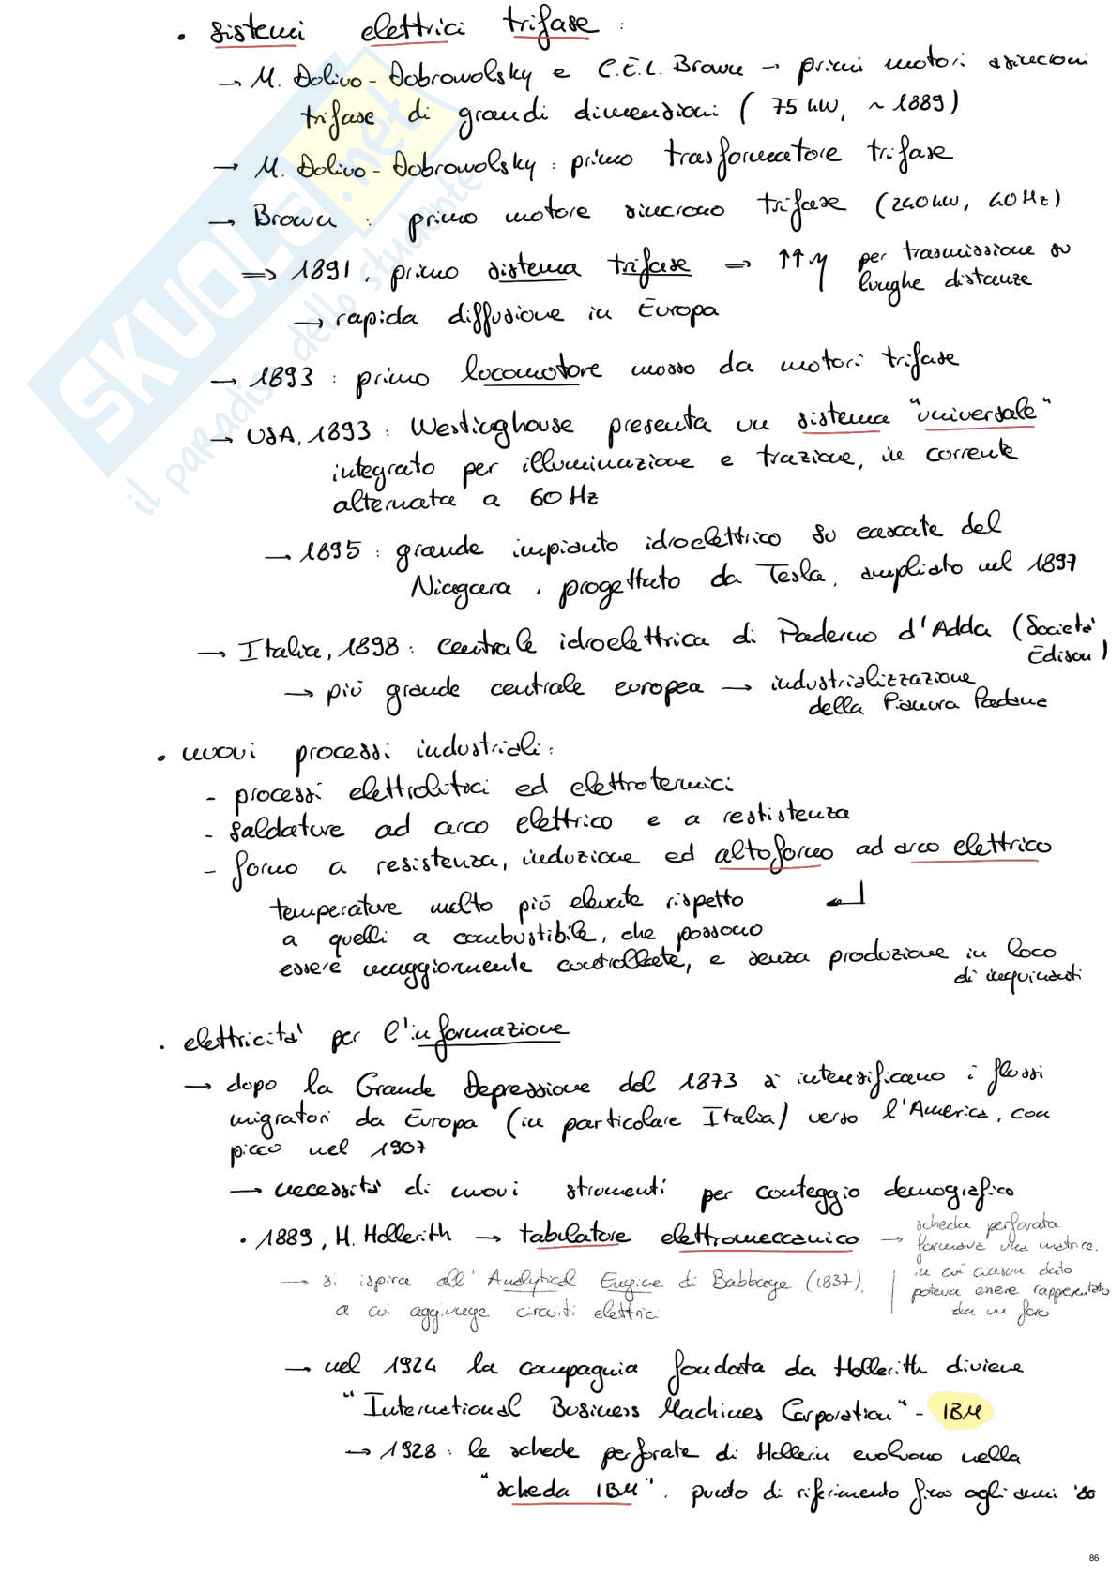 • sistemi elettrici trifase:
→ M. Dolivo-Dobrowolsky e C.E.L. Brown → primi motori asincroni
trifase di grandi dimensioni (75 kW, ~1889)
→ M. Dolivo-Dobrowolsky: primo trasformatore trifase
→ Brown: primo motore sincrono trifase (240 kW, 40 Hz)
⇒ 1891, primo sistema trifase → ↑↑η per trasmissione su
lunghe distanze
→ rapida diffusione in Europa
→ 1893: primo locomotore mosso da motori trifase
→ USA, 1893: Westinghouse presenta un sistema "universale"
integrato per illuminazione e trazione, in corrente
alternata a 60 Hz
→ 1895: grande impianto idroelettrico su cascate del
Niagara, progettato da Tesla, ampliato nel 1897
→ Italia, 1898: centrale idroelettrica di Paderno d'Adda (Società
Edison)
→ più grande centrale europea → industrializzazione
della Pianura Padana
• nuovi processi industriali:
- processi elettrolitici ed elettrotermici
- saldature ad arco elettrico e a restistenza
- forno a resistenza, induzione ed altoforno ad arco elettrico
temperature molto più elevate rispetto ↵
a quelli a combustibile, che possono
essere maggiormente controllate, e senza produzione in loco
di inquinanti
• elettricità per l'informazione
→ dopo la Grande Depressione del 1873 si intensificano i flussi
migratori da Europa (in particolare Italia) verso l'America, con
picco nel 1907
→ necessità di nuovi strumenti per conteggio demografico
• 1889, H. Hollerith → tabulatore elettromeccanico → scheda perforata
formava una matrice,
in cui ciascun dato
poteva essere rappresentato
da un foro
→ si ispira all'Analytical Engine di Babbage (1837),
a cui aggiunge circuiti elettrici
→ nel 1924 la compagnia fondata da Hollerith diviene
"International Business Machines Corporation" - IBM
→ 1928: le schede perforate di Hollerith evolvono nella
"scheda IBM", punto di riferimento fino agli anni '80
SKUOLA.net
il paradiso dello studente
86